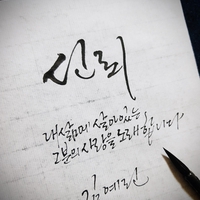 신뢰
내 삶에 살아있는
그분의 사랑을 노래합니다
김예린